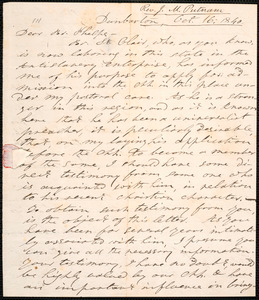 Rev. J. M. Putnam
Dunbarton, Oct. 16, 1840.
Dear Mr. Phelps,
Mr. St. Clair, who as you know,
is now labouring in this state in the
Antislavery enterprise, has informed
me of his purpose to apply for ad-
mission into the Chh in this place under
my pastoral care. As he is a stran-
ger in this region, and as it is known
here that he has been a universalist
preacher, it is peculiarly desirable,
that on my laying his application
before the Chh. to become a member
of the same, I should have some di-
rect testimony from some one who
is acquainted with him, in relation
to his recent christian character.
To obtain such testimony from you,
is the object of this letter. As you
have been for several years intimate-
ly associated with him, I presume you
can give all the necessary information.
Your testimony I have no doubt would
be highly valued by our Chh. & have
an important influence on bring-